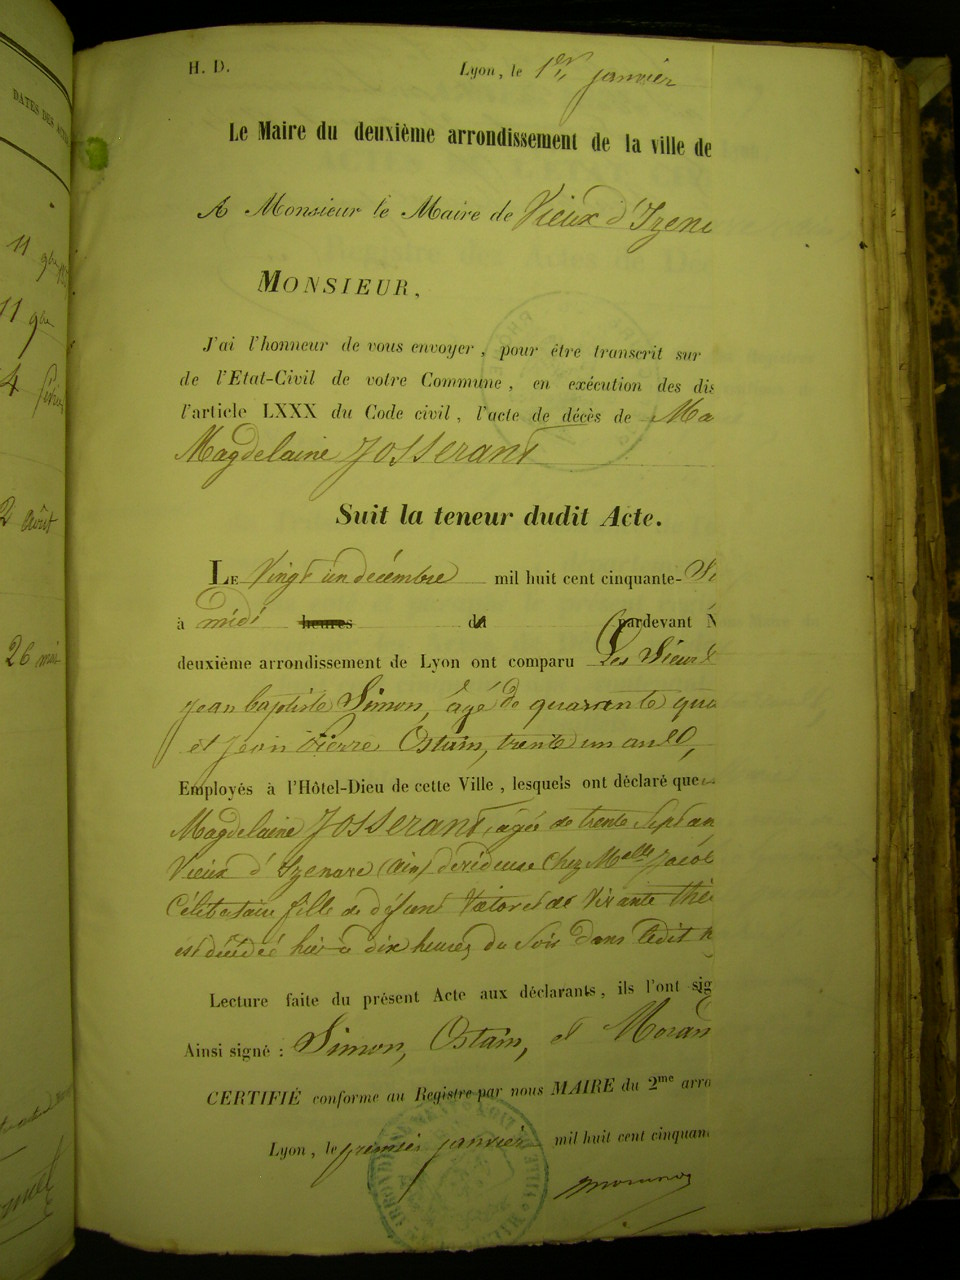 H. D.
Lyon, le 1er janvier
Le Maire du deuxième arrondissement de la ville de
A Monsieur le Maire de Vieux d'Izena
MONSIEUR,
J'ai l'honneur de vous envoyer, pour être transcrit sur
de l'Etat-Civil de votre Commune, en exécution des dis
l'article LXXX du Code civil, l'acte de décès de Ma
Magdelaine Josserant
Suit la teneur dudit Acte.
LE Vingt un décembre mil huit cent cinquante-
à midi heures d pardevant N
deuxième arrondissement de Lyon ont comparu Les Sieurs
Jean baptiste Simon, âgé de quarante qua
et Jean Pierre Ostain, trente un ans,
Employés à l'Hôtel-Dieu de cette Ville, lesquels ont déclaré que
Magdelaine Josserant, agée de trente Sept an
Vieux d'Izenave (ain) devideuse Chez Melle Jacob
Célibataire fille de défunt et de Vivante Thé
est décédée hier à dix heures du Soir dans ledit h
Lecture faite du présent Acte aux déclarants, ils l'ont sig
Ainsi signé : Simon, Ostain, et Morand
CERTIFIÉ conforme au Registre par nous MAIRE du 2me arro
Lyon, le premier janvier mil huit cent cinquan
DATES DES
11 9bre
11 9bre
4 février
2 Août
26 mai